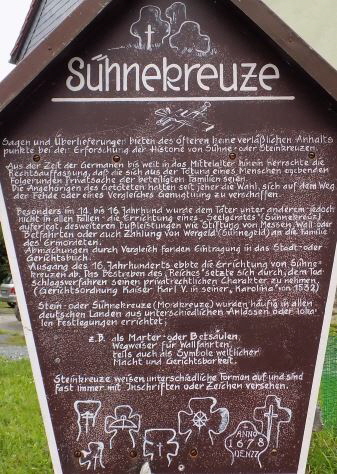 Sühnekreuze
Sagen und Überlieferungen bieten des öfteren keine verläßlichen Anhalts
punkte bei der Erforschung der Historie von Sühne- oder Steinkreuzen.
Aus der Zeit der Germanen bis weit in das Mittelalter hinein herrschte die
Rechtsauffassung, daß die sich aus der Tötung eines Menschen ergebenden
Folgerungen Privatsache der beteiligten Familien seien.
Die Angehörigen des Getöteten hatten seit jeher die Wahl, sich auf dem Weg
der Fehde oder eines Vergleiches Genugtuung zu verschaffen.
Besonders im 14. bis 16. Jahrhundert wurde dem Täter unter anderem jedoch
nicht in allen Fällen die Errichtung eines "Seelgeräts" (Sühnekreuz)
auferlegt, desweiteren Bußleistungen wie Stiftung von Messen, Wall- oder
Betfahrten oder auch Zahlung von Wergeld (Sühnegeld) an die Familie
des Ermordeten.
Abmachungen durch Vergleich fanden Eintragung in das Stadt- oder
Gerichtsbuch.
Ausgang des 16. Jahrhunderts ebbte die Errichtung von Sühne-
kreuzen ab. Das Bestreben des "Reiches" setzte sich durch, dem Tod-
schlagsverfahren seinen privatrechtlichen Charakter zu nehmen.
(Gerichtsordnung Kaiser Karl V. in seiner "Karolina" von 1532)
Stein- oder Sühnekreuze (Mordkreuze) wurden häufig in allen
deutschen Landen aus unterschiedlichen Anlässen oder loka-
len Festlegungen errichtet,
z.B. als Marter- oder Betsäulen
Wegweiser für Wallfahrten,
teils auch als Symbole weltlicher
Macht und Gerichtsborkeit.
Steinkreuze weisen unterschiedliche Formen auf und sind
fast immer mit Inschriften oder Zeichen versehen.
ANNO
1678